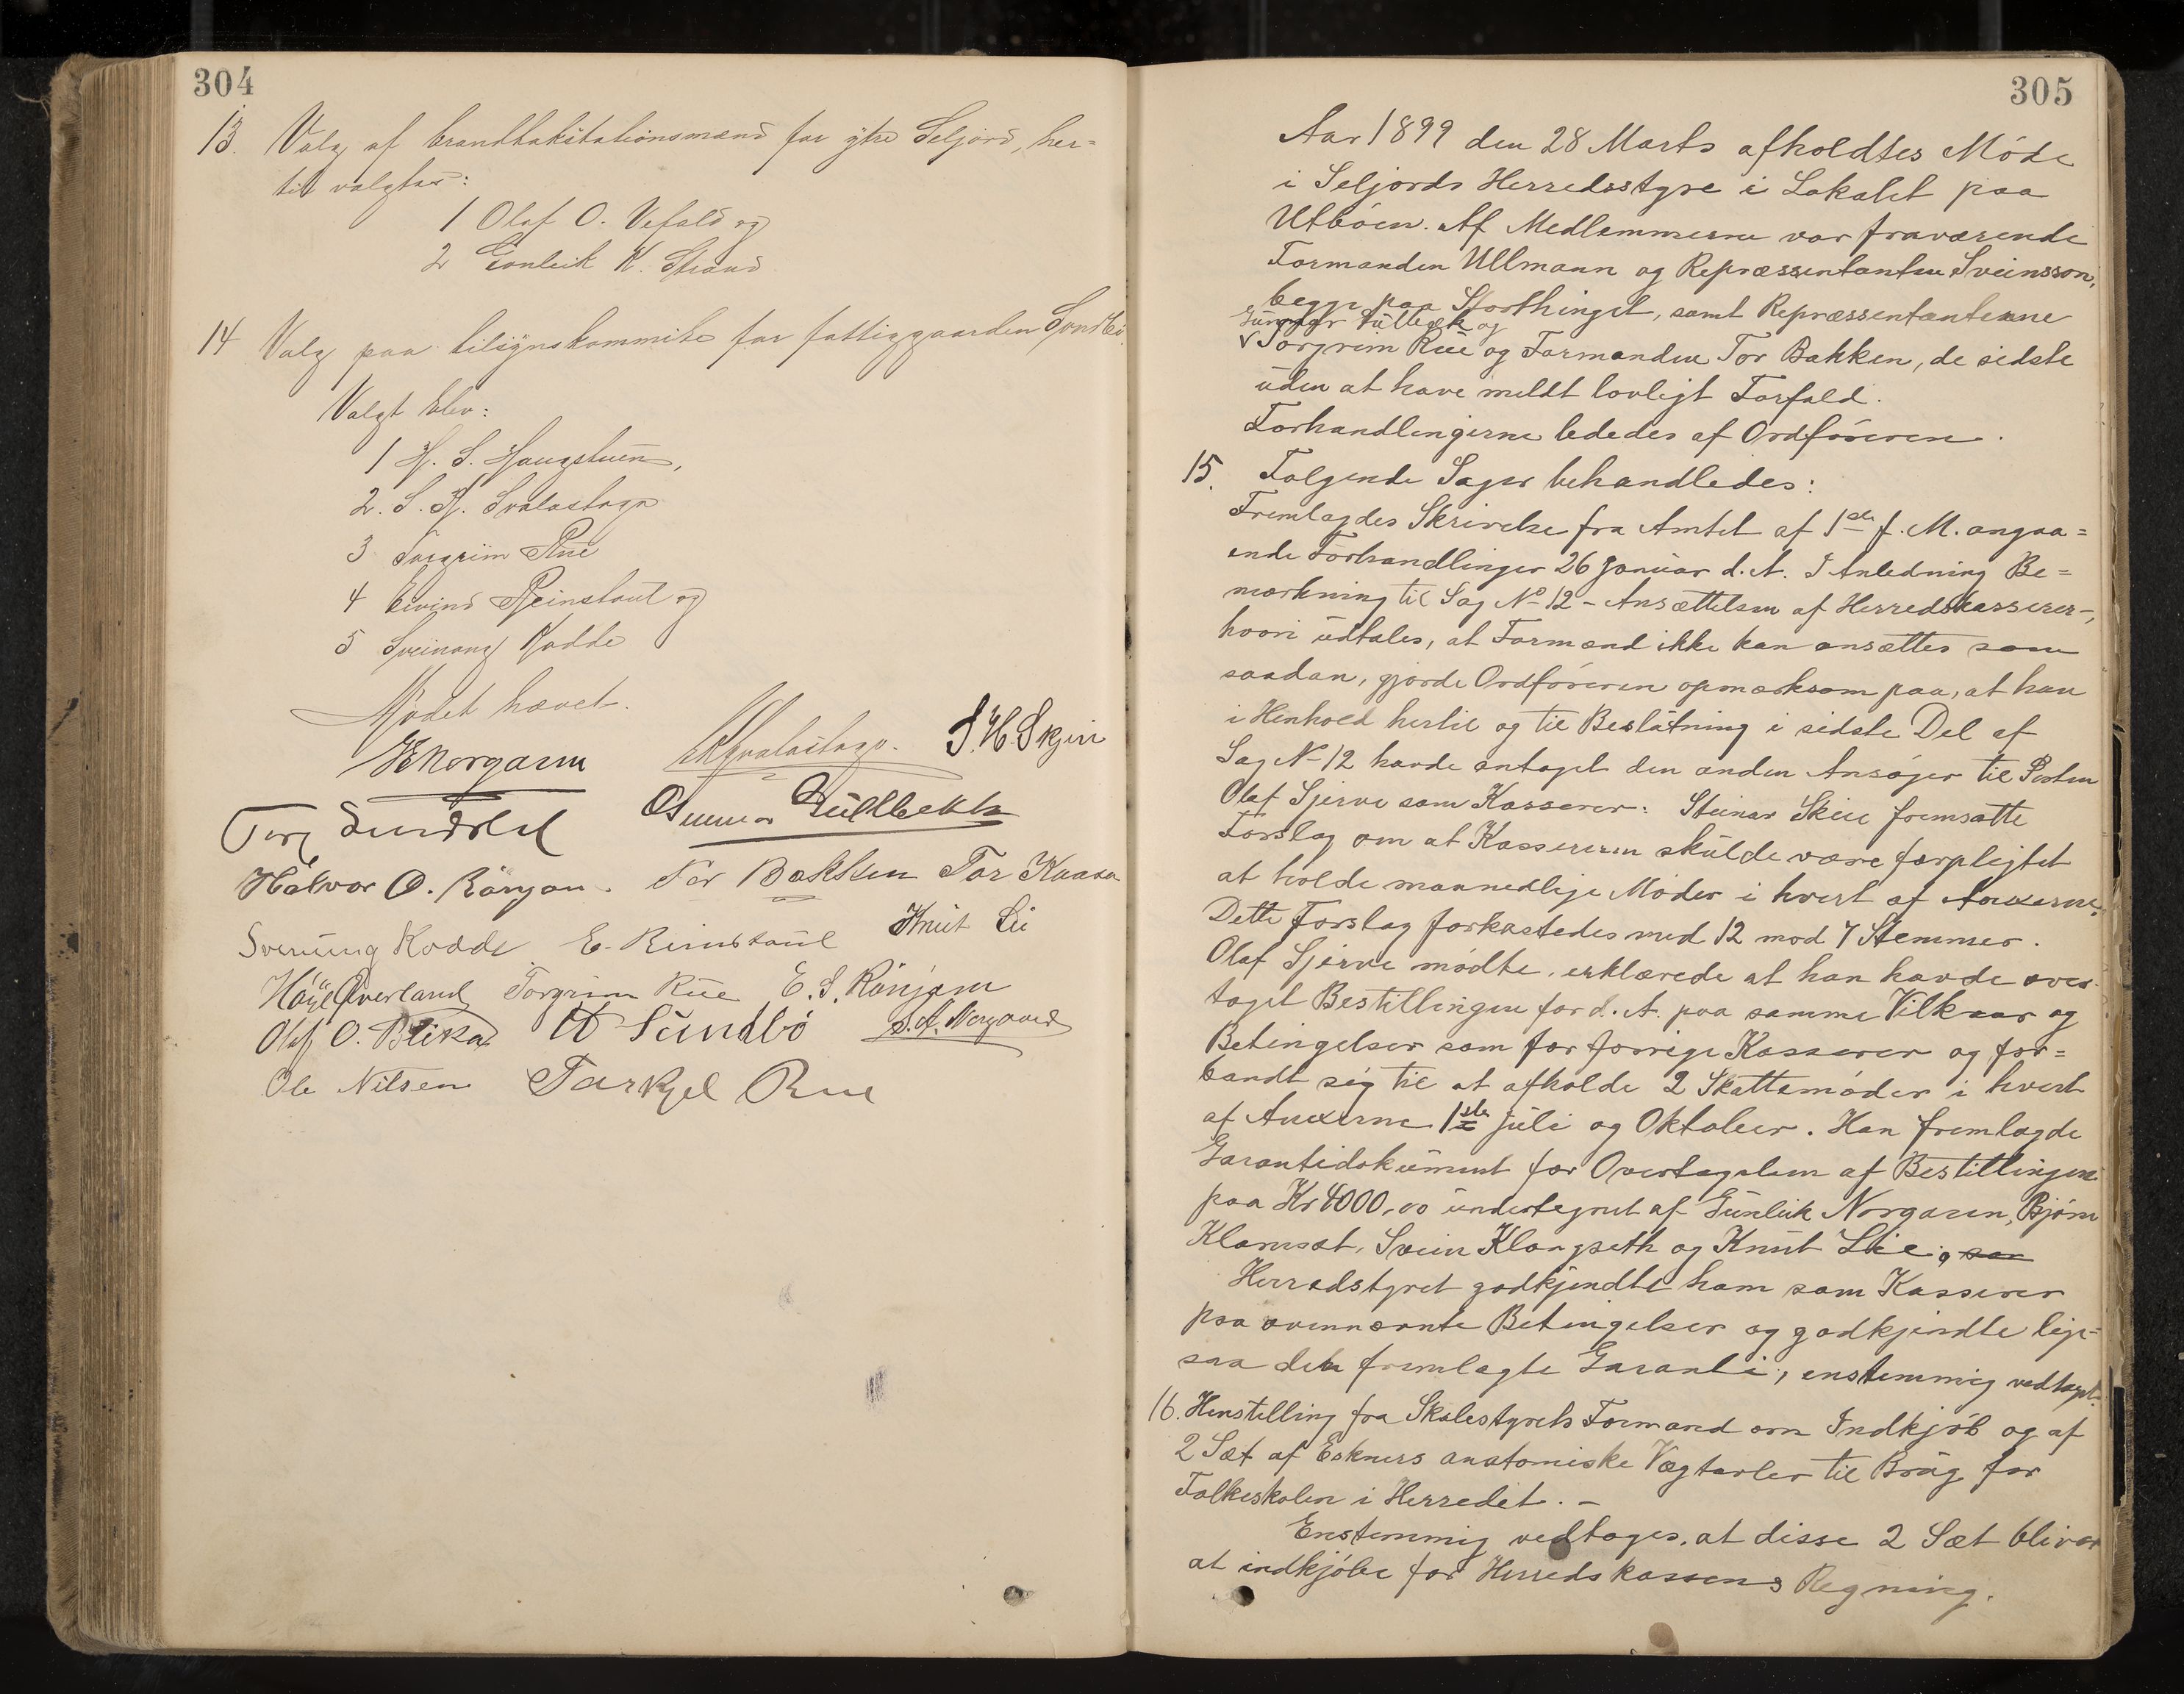 304
13. Valg af brandtakstationsmænd for ytre Seljord, her-
til valgtes:
1 Olaf O. Vefald og
2 Gonleik K. Strand
14 Valg paa tilsynskommite for fattiggaarden Sundbö.
Valgt blev:
1 H. S. Haugstuen,
2. S. K. Svalastoga
3 Torgrim Rue
4 Eivind Reinstaul og
5 Sveinung Kodde
Mødet hævet.
Svalastoga. S. H. Skjeri
Gunnar Gullbekk
Halvor O. Rönjom. Tor Bakken Tor Kaasa
Sveinung Kodde E. Reinstaul Knut Lii
Høye Överland Torgrim Rue E. S. Rönjom
Olaf O. Bleka H Sundbö S. A. Norgaard
Ole Nilsen Tarkjel Rue
305
Aar 1899 den 28 Marts afholdtes Möde
i Seljords Herredsstyre i Lokalet paa
Utböen. Af Medlemmerne var fraværende
Formanden Ullmann og Repræssentanten Sveinsson,
begge paa Storthinget, samt Repræssentanterne
Gunnar Gullbæk og
Torgrim Rue og Formanden Tor Bakken, de sidste
uden at have meldt lovligt Forfald.
Forhandlingerne lededes af Ordföreren.
15. Følgende Sager behandledes:
Fremlagdes Skrivelse fra Amtet af 1ste f. M. angaa=
ende Forhandlinger 26 Januar d. A. I Anledning Be=
mærkning til Sag No 12 - Ansættelsen af Herredskasserer-,
hvori udtales, at Formænd ikke kan ansættes som
saadan, gjorde Ordföreren opmærksom paa, at han
i Henhold hertil og til Beslutning i sidste Del af
Sag No 12 havde antaget den anden Ansøger til Posten
Olaf Sjerve som Kasserer: Steinar Skeie fremsatte
Forslag om at Kassereren skulde være forpligtet
at holde maanedlige Möder i hvert af Annexerne.
Dette Forslag forkastedes med 12 mod 7 Stemmer.
Olaf Sjerve mødte, erklærede at han havde over-
taget Bestillingen for d. A. paa samme Vilkaar og
Betingelser som for forrige Kasserer og for=
bandt sig til at afholde 2 Skattemöder i hvert
af Anexerne 1ste Juli og Oktober. Han fremlagde
Garantidokument for Overtagelsen af Bestillingen
paa Kr 4000,00 undertegnet af Gunleik Norgaren, Björn
Klomset, Svein Klongseth og Knut Lie, som
Herredstyret godkjendte ham som Kasserer
paa ovennævnte Betingelser og godkjendte lige=
saa den fremlagte Garanti, enstemmig vedtaget.
16. Henstilling fra Skolestyrets Formand om Indkjöb og af
2 Sæt af Eskners anatomiske Vægtavler til Brug for
Folkeskolen i Herredet. -
Enstemmig vedtoges, at disse 2 Sæt bliver
at indkjöbe for Herredskassens Regning.